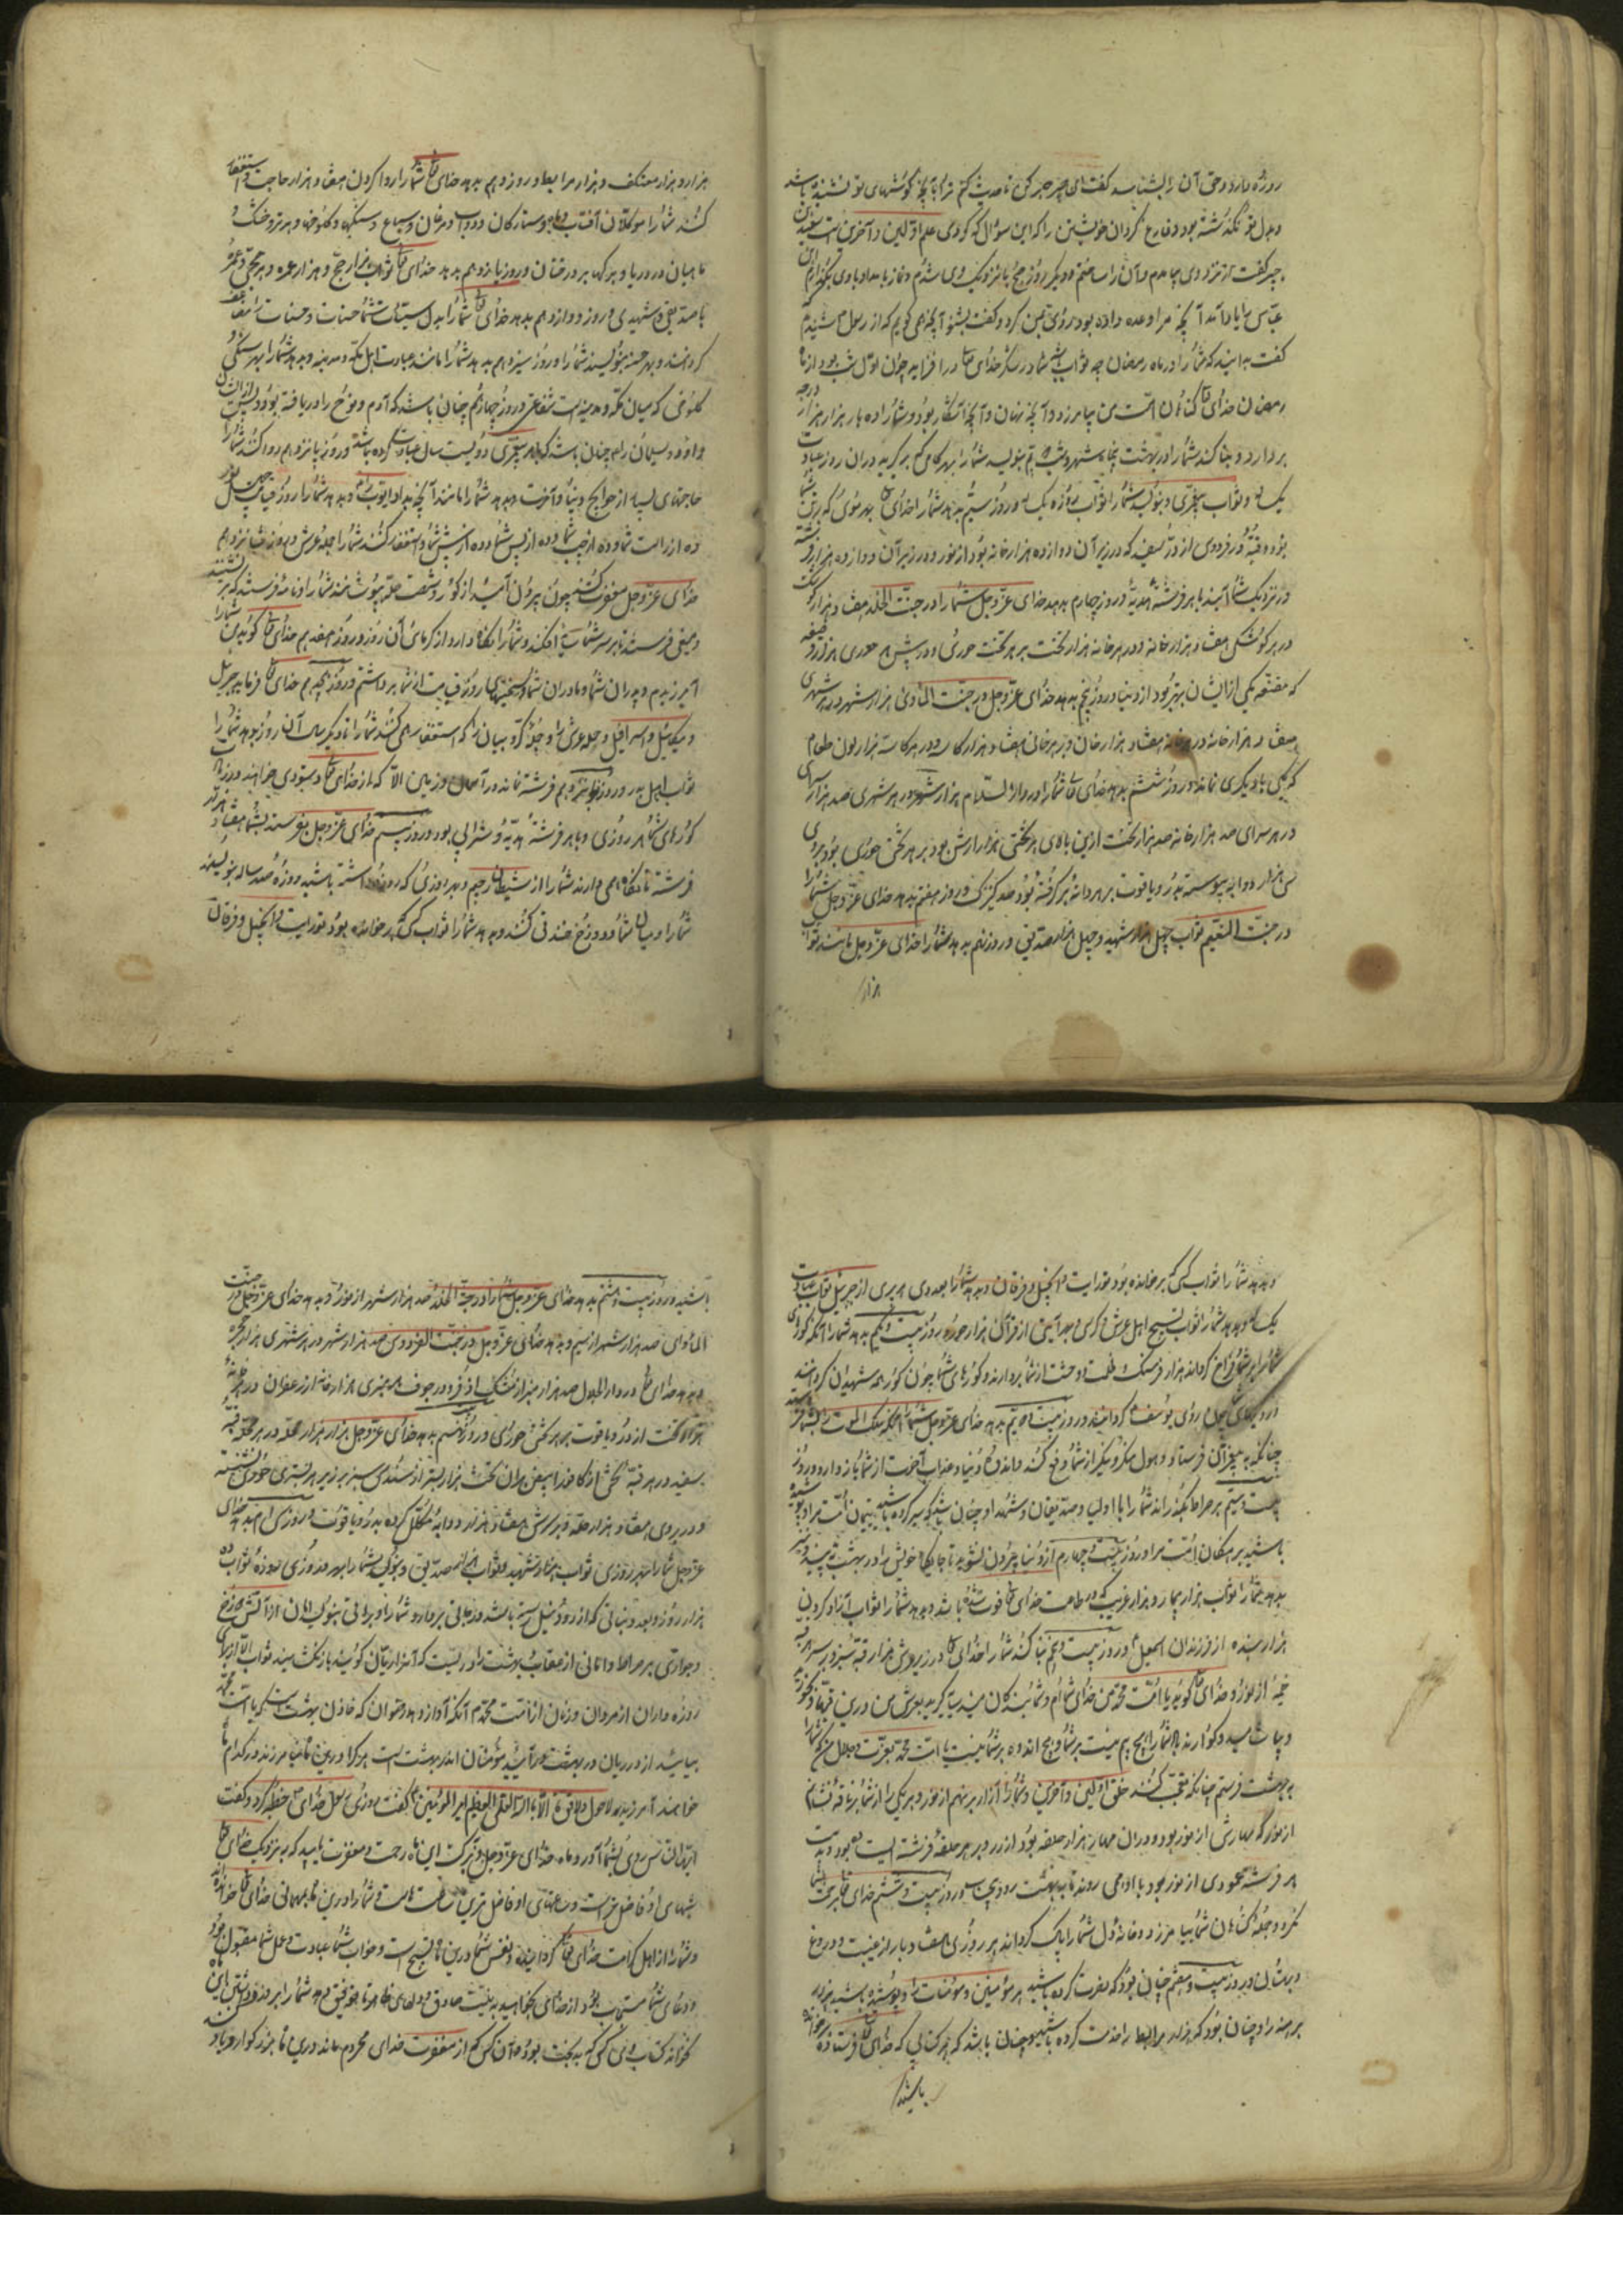 روزه دارد و حق آن را بشناسد گفت ای پسر جبیر کی تا حدیث کنم ترا بآنچه گوشهای تو نشنیده باشد
و بدل تو نگذشته بود و فارغ گردان خویشتن را که این سؤال که کردی علم اولین و آخرین است سعید بن
جبیر گفت از نزد وی بیامدم و آن راست ساختم و دیگر روز نزدیک وی شدم و نماز بامداد با وی بگزاردم ابن
عباس را یاد آمد آنچه مرا وعده داده بود روی بمن کرد و گفت بشنو آنچه می گویم که از رسول شنیدم
گفت بدانید که شما را در ماه رمضان چه ثواب است شما در شکر خدای تعالی در افزایید چون اول شب بود از ماه
رمضان خدای تعالی گناهان امت من بیامرزد و آنچه نهان و آنچه آشکارا بود و شما را ده بار هزار هزار درجه
بردارد و بنا کند شما را در بهشت پنجاه شهر و بنویسد شما را بهر گامی که برگیرید در آن روز عبادت
یک ساله و ثواب پیغمبری و بنویسد شما را ثواب روزه یک ساله و روز سیم بدهد شما را خدای تعالی بهر موی که بر تن شما
بود قبه در فردوس از در سفید که در زیر آن دوازده هزار خانه بود از نور و در زبر آن دوازده هزار فرشته
در نزدیک شما آیند با هر فرشته هدیه و روز چهارم بدهد خدای عز و جل شما را در جنت الخلد هفتاد هزار کوشک
در هر کوشکی هفتاد هزار خانه و در هر خانه هزار تخت بر هر تخت حوری و در پیش هر حوری هزار وصیفه
که مقنعه یکی از ایشان بهتر بود از دنیا و روز پنجم بدهد خدای عز و جل در جنت المأوی هزار شهر در هر شهری
هفتاد هزار خانه در هر خانه هفتاد هزار خوان و بر هر خوانی هفتاد هزار کاسه و در هر کاسه هزار لون طعام
که یکی با دیگری نماند و روز ششم بدهد خدای تعالی شما را در دار السلام هزار شهر در هر شهری صد هزار سرای
در هر سرای صد هزار خانه صد هزار تخت ازین بالای هر تختی هزار ارش بود بر هر تختی حوری بود بر وی
سی هزار دوابه پیوسته بدر و یاقوت بر هر دابه گرفته بود صد کنیزک و روز هفتم بدهد خدای عز و جل شما را
در جنت النعیم ثواب چهل هزار شهید و چهل هزار صدیق و روز نهم بدهد شما را خدای عز و جل مانند ثواب
هزار
هزار و هزار معتکف و هزار مرابط و روز دهم بدهد خدای تعالی شما را روا کردن هفتاد هزار حاجت و استغفار
کنند شما را موکلان آفتاب و ماه و ستارگان و دواب و مرغان و سباع و سنگها و کلوخها و هر تر و خشک و
ماهیان در دریا و برگها بر درختان و روز یازدهم بدهد خدای تعالی ثواب هزار حج و هزار عمره و هر حجی و عمره
با صدیقی و شهیدی و روز دوازدهم بدهد خدای تعالی شما را بدل سیئات شما حسنات و حسنات را مضاعف
گردانند و بهر حسنه بنویسند شما را و روز سیزدهم بدهد شما را مانند عبادت اهل مکه و مدینه و بدهد شما را بهر سنگی و
کلوخی که میان مکه و مدینه است شفاعتی و روز چهاردهم چنان باشد که آدم و نوح را دریافته بود و پس از ایشان
داود و سلیمان را و چنان باشد که با هر پیغمبری دویست سال عبادت کرده باشد و روز پانزدهم روا کند شما را
حاجتهای بسیار از حوائج دنیا و آخرت و بدهد شما را مانند آنچه بداد ایوب را و بدهد شما را روز قیامت چهل نور
ده از راست شما و ده از چپ شما و ده از پس شما و ده از پیش شما و استغفار کنند شما را حمله عرش و روز شانزدهم
خدای عز و جل مغفرت کند چون بیرون آئید از گور و شصت حله بپوشند شما را و ناقه فرستد که بر نشینید
و میغی فرستد تا بر سر شما سایه افکند و شما را نگاه دارد از گرمای آن روز و روز هفدهم خدای تعالی گوید من شما را
آمرزیدم و پدران شما و مادران شما و سختیهای روز قیامت از شما برداشتم و روز هجدهم خدای تعالی فرماید جبرئیل
و میکائیل و اسرافیل و حمله عرش را و کروبیان را که استغفار می کنند شما را تا دیگر سال آن روز بدهد شما را
ثواب اهل بدر و روز نوزدهم فرشته نماند در آسمان و زمین الا که از خدای تعالی دستوری خواهند و زیارت
گورهای شما هر روزی و با هر فرشته هدیه و شرابی بود و روز بیستم خدای عز و جل بفرستد بشما هفتاد هزار
فرشته تا نگاه می دارند شما را از شیطان رجیم و بهر روزی که روزه داشته باشید روزه صد ساله بنویسند
شما را و میان شما و دوزخ خندقی کند و بدهد شما را ثواب کسی که برخوانده بود توریت و انجیل و فرقان
و بدهد شما را ثواب کسی که برخوانده بود توریت و انجیل و فرقان و بدهد شما را بعدد هر پری از جبرئیل ثواب عبادت
یک ساله و بدهد شما را ثواب تسبیح اهل عرش و کرسی و بهر آیتی از قرآن هزار حوری و روز بیست و یکم بدهد شما را آنکه گورهای
شما را بر شما فراخ گرداند هزار فرسنگ و ظلمت و وحشت از شما بردارد و گورهای شما چون گورهای شهیدان گرداند
و رویهای شما چون روی یوسف گرداند و روز بیست و دوم بدهد خدای عز و جل شما را آنکه ملک الموت را بشما فرستد
چنانکه به پیغمبران فرستاد و هول منکر و نکیر از شما دفع کند و اندوه دنیا و عذاب آخرت از شما باز دارد و روز
بیست و سیم بر صراط بگذراند شما را با اولیا و صدیقان و شهدا و چنان باشید که سیر کرده باشید یتیمان امت مرا و پوشیده
باشید برهنگان امت مرا و روز بیست و چهارم از دنیا بیرون نشوید تا جایگاه خویش را در بهشت نبینید
بدهد شما را ثواب هزار بیمار و هزار غریب که در طاعت خدای تعالی فوت شده باشد و بدهد شما را ثواب آزاد کردن
هزار بنده از فرزندان اسمعیل و روز بیست و پنجم بنا کند شما را خدای تعالی در زیر عرش هزار قبه سبز بر سر هر قبه
خیمه از نور و خدای تعالی گوید یا امت محمد من خدای شما ام و شما بندگان منید سایه گیرید بعرش من درین قبها
که شما را هیچ بیم نیست بر شما و هیچ اندوه بر شما نیست یا امت محمد بعزت و جلال من که شما را
به بهشت فرستم چنانکه عجب کنند خلق اولین و آخرین و شما را تاج بر نهم از نور و هر یکی را از شما بر ناقه نشانم
از نور که مهارش از نور بود و در آن مهار هزار حلقه بود از زر و بر هر حلقه فرشته ایستاده بود و بدست
هر فرشته عمودی از نور بود با او می روند تا ببهشت رود بی حساب و روز بیست و ششم خدای تعالی بشما برحمت
نگرد و جمله گناهان شما بیامرزد و خانه دل شما را پاک گرداند هر روزی هفتاد بار از غیبت و دروغ
و بهتان و روز بیست و هفتم چنان بود که نصرت کرده باشید هر مؤمنین و مؤمنات را و پوشیده باشید هزار
برهنه را و چنان بود که هزار مرابط را خدمت کرده باشید و چنان باشد که هر کتابی که خدای تعالی فرستاده برخوانده
باشید
باشید و روز بیست و هشتم بدهد خدای عز و جل شما را در جنة الخلد صد هزار شهر از نور و بدهد خدای عز و جل در جنت
المأوای صد هزار شهر از سیم و بدهد خدای عز و جل در جنت الفردوس صد هزار شهر در هر شهری هزار حجره
و بدهد خدای تعالی در دار الجلال صد هزار منبر از مشک اذفر و در جوف هر منبری هزار خانه از زعفران در هر خانه
هزار تخت از در و یاقوت بر هر تختی حوری و روز بیست و نهم بدهد خدای عز و جل هزار هزار محله در هر محله قبه
سفید در هر قبه تختی از کافور سفید بر آن تخت هزار بستر از سندس سبز بر زبر هر بستری حوری نشسته
و در بر وی هفتاد هزار حله و بر سرش هفتاد هزار دوابه مکلل کرده بدر و یاقوت و روز سی ام بدهد خدای
عز و جل شما را بهر روزی ثواب هزار شهید و ثواب هزار صدیق و بنویسد شما را بهر روزی روزه ثواب ده
هزار روز و بعدد نباتی که از رود نیل رسته باشد درجاتی بردارد و شما را و براتی بنویسد امان از آتش دوزخ
و جوازی بر صراط و امانی از عذاب و بهشت را دریست که آنرا ریان گویند باز نگشایند ثواب الا برای
روزه داران از مردان و زنان از امت محمد آنکه آواز دهد رضوان که خازن بهشت است که یا امت محمد
بیایید از در ریان در بهشت در آیید مؤمنان اندر بهشت است هر که را درین ماه نیامرزند در کدام ماه
خواهند آمرزید و لا حول و لا قوة الا بالله العلی العظیم امیر المؤمنین گفت روزی رسول خدای خطبه کرد و گفت
ایها الناس روی بشما آورد ماه خدای عز و جل و ببرکت این ماه رحمت و مغفرت یابید که بنزدیک خدای تعالی
شبهای او فاضل ترین است و ساعتهای او فاضل ترین ساعتهاست و شما را درین ماه بمهمانی خدای تعالی خوانده اند
و شما را از اهل کرامت خدای تعالی گردانیدند و نفس شما درین ماه تسبیح است و خواب شما عبادت و عمل شما مقبول بود
و دعای شما مستجاب بود از خدای بخواهید به نیت صادق و دلهای طاهر تا توفیق دهد شما را بر روزه داشتن این ماه
خواندن کتاب وی که کسی که بدبخت بود آن کس که از مغفرت خدای محروم ماند درین ماه بزرگوار و یاد کنید